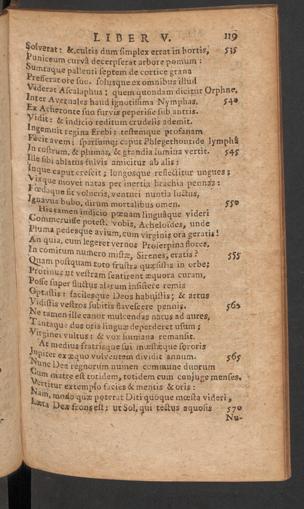 LIBER V. 119
Solverat: &, cultis dum simplex errat in hortis, 535
Puniceum curvâ decerpserat arbore pomum:
Sumtaque pallenti septem de cortice grana
Presserat ore suo. solusque ex omnibus illud
Viderat Ascalaphus: quem quondam dicitur Orphne,
Inter Avernales haud ignotissima Nymphas, 540
Ex Acheronte suo furvis peperisse sub antris.
Vidit: & indicio reditum crudelis ademit.
Ingemuit regina Erebi: testemque profanam
Fecit avem: sparsumq; caput Phlegethontide lymphâ
In rostrum, & plumas, & grandia lumina vertit. 545
Ille sibi ablatus fulvis amicitur ab alis:
Inque caput crescit; longosque reflectitur ungues;
Vixque movet natas per inertia brachia pennas:
Fœdaque fit volucris, venturi nuntia luctus,
Ignavus bubo, dirum mortalibus omen. 550
Hic tamen indicio pœnam linguâque videri
Commeruisse potest. vobis, Acheloïdes, unde
Pluma pedesque avium, cum virginis ora geratis?
An quia, cum legeret vernos Proserpina flores,
In comitum numero mistæ, Sirenes, eratis? 555
Quam postquam toto frustra quæsistis in orbe;
Protinus ut vestram sentirent æquora curam,
Posse super fluctus alarum insistere remis
Optastis: facilesque Deos habuistis; & artus
Vidistis vestros subitis flavescere pennis. 560
Ne tamen ille canor mulcendas natus ad aures,
Tantaque dos oris linguæ deperderet usum;
Virginei vultus: & vox humana remansit.
At medius fratrisque sui mæstæque sororis
Jupiter ex æquo volventem dividit annum. 565
Nunc Dea regnorum numen commune duorum
Cum matre est totidem, totidem cum conjuge menses.
Vertitur extemplo facies & mentis & oris:
Nam, modo quæ poterat Diti quoque mœsta videri,
Læta Deæ frons est; ut Sol, qui tectus aquosis 570
Nu-